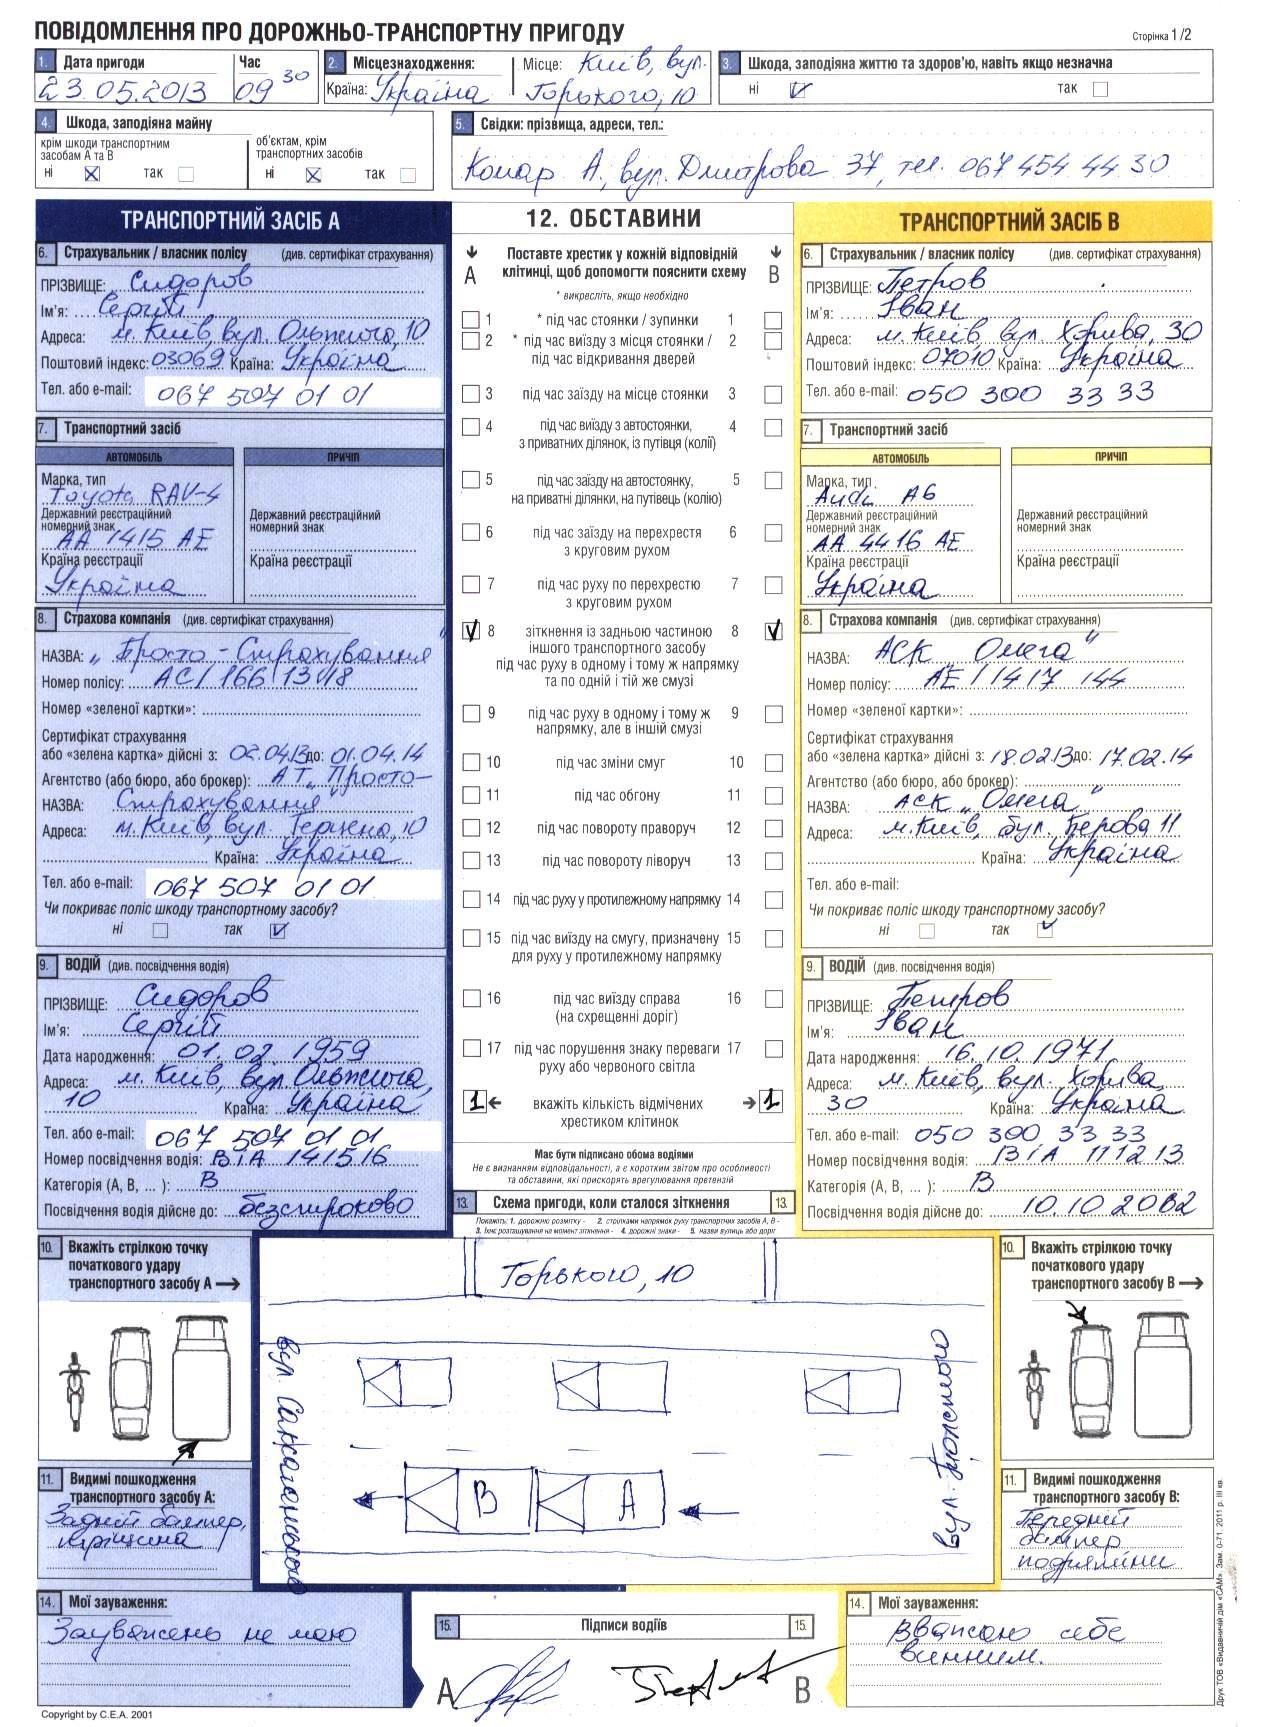 ПОВІДОМЛЕННЯ ПРО ДОРОЖНЬО-ТРАНСПОРТНУ ПРИГОДУ
Сторінка 1/2
1. Дата пригоди Час
23.05.2013 09 30
2. Місцезнаходження: Місце: Київ, вул.
Країна: Україна Горького, 10
3. Шкода, заподіяна життю та здоров'ю, навіть якщо незначна
ні так
4. Шкода, заподіяна майну
крім шкоди транспортним засобам А та В
ні так
об'єктам, крім транспортних засобів
ні так
5. Свідки: прізвища, адреси, тел.:
Комар А, вул. Дмитрова 37, тел. 067 454 44 30
ТРАНСПОРТНИЙ ЗАСІБ А
6. Страхувальник / власник полісу (див. сертифікат страхування)
ПРІЗВИЩЕ: Сидоров
Ім'я: Сергій
Адреса: м. Київ вул. Ольжича, 10
Поштовий індекс: 03069 Країна: Україна
Тел. або e-mail: 067 507 01 01
7. Транспортний засіб
АВТОМОБІЛЬ ПРИЧІП
Марка, тип
Toyota RAV-4
Державний реєстраційний номерний знак
АА 1415 АЕ
Країна реєстрації
Україна
Державний реєстраційний номерний знак
Країна реєстрації
8. Страхова компанія (див. сертифікат страхування)
НАЗВА: „Просто-Страхування"
Номер полісу: АС/ 166 13418
Номер «зеленої картки»:
Сертифікат страхування
або «зелена картка» дійсні з: 02.04.13 до: 01.04.14
Агентство (або бюро, або брокер): АТ „Просто-
НАЗВА: Страхування"
Адреса: м. Київ, вул. Герцена, 10
Країна: Україна
Тел. або e-mail: 067 507 01 01
Чи покриває поліс шкоду транспортному засобу?
ні так
9. ВОДІЙ (див. посвідчення водія)
ПРІЗВИЩЕ: Сидоров
Ім'я: Сергій
Дата народження: 01. 02. 1959
Адреса: м. Київ, вул. Ольжича,
10 Країна: Україна
Тел. або e-mail: 067 507 01 01
Номер посвідчення водія: ВІА 141516
Категорія (А, В, ... ): В
Посвідчення водія дійсне до: безстроково
10. Вкажіть стрілкою точку
початкового удару
транспортного засобу А
11. Видимі пошкодження
транспортного засобу А:
Задній бампер,
тріщина
14. Мої зауваження:
Зауважень не маю
12. ОБСТАВИНИ
A Поставте хрестик у кожній відповідній B
клітинці, щоб допомогти пояснити схему
* викресліть, якщо необхідно
1 * під час стоянки / зупинки 1
2 * під час виїзду з місця стоянки / 2
під час відкривання дверей
3 під час заїзду на місце стоянки 3
4 під час виїзду з автостоянки, 4
з приватних ділянок, із путівця (колії)
5 під час заїзду на автостоянку, 5
на приватні ділянки, на путівець (колію)
6 під час заїзду на перехрестя 6
з круговим рухом
7 під час руху по перехрестю 7
з круговим рухом
V 8 зіткнення із задньою частиною 8 V
іншого транспортного засобу
під час руху в одному і тому ж напрямку
та по одній і тій же смузі
9 під час руху в одному і тому ж 9
напрямку, але в іншій смузі
10 під час зміни смуг 10
11 під час обгону 11
12 під час повороту праворуч 12
13 під час повороту ліворуч 13
14 під час руху у протилежному напрямку 14
15 під час виїзду на смугу, призначену 15
для руху у протилежному напрямку
16 під час виїзду справа 16
(на схрещенні доріг)
17 під час порушення знаку переваги 17
руху або червоного світла
1 вкажіть кількість відмічених 1
хрестиком клітинок
Має бути підписано обома водіями
Не є визнанням відповідальності, а є коротким звітом про особливості
та обставини, які прискорять врегулювання претензій
13. Схема пригоди, коли сталося зіткнення 13.
Покажіть: 1. дорожню розмітку - 2. стрілками напрямок руху транспортних засобів А, В -
3. їхнє розташування на момент зіткнення - 4. дорожні знаки - 5. назви вулиць або доріг
Горького, 10
вул. Саксаганського
вул. Толстого
В А
15. Підписи водіїв 15.
A B
ТРАНСПОРТНИЙ ЗАСІБ В
6. Страхувальник / власник полісу (див. сертифікат страхування)
ПРІЗВИЩЕ: Петров
Ім'я: Іван
Адреса: м. Київ вул. Хорива, 30
Поштовий індекс: 07010 Країна: Україна
Тел. або e-mail: 050 300 33 33
7. Транспортний засіб
АВТОМОБІЛЬ ПРИЧІП
Марка, тип
Audi A6
Державний реєстраційний номерний знак
АА 4416 АЕ
Країна реєстрації
Україна
Державний реєстраційний номерний знак
Країна реєстрації
8. Страхова компанія (див. сертифікат страхування)
НАЗВА: АСК „Омега"
Номер полісу: АЕ/ 1417 144
Номер «зеленої картки»:
Сертифікат страхування
або «зелена картка» дійсні з: 18.02.13 до: 17.02.14
Агентство (або бюро, або брокер):
НАЗВА: АСК „Омега"
Адреса: м. Київ, бул. Перова 11
Країна: Україна
Тел. або e-mail:
Чи покриває поліс шкоду транспортному засобу?
ні так
9. ВОДІЙ (див. посвідчення водія)
ПРІЗВИЩЕ: Петров
Ім'я: Іван
Дата народження: 16. 10. 1971
Адреса: м. Київ, вул. Хорива
30 Країна: Україна
Тел. або e-mail: 050 300 33 33
Номер посвідчення водія: ВІА 111213
Категорія (А, В, ... ): В
Посвідчення водія дійсне до:
10. Вкажіть стрілкою точку
початкового удару
транспортного засобу В
11. Видимі пошкодження
транспортного засобу В:
Передній
бампер
подряпини
14. Мої зауваження:
Вважаю себе
винним.
Copyright by C.E.A. 2001
Друк ТОВ «Видавничий дім «САМ». Зам. 0-71. 2011 р. III кв.